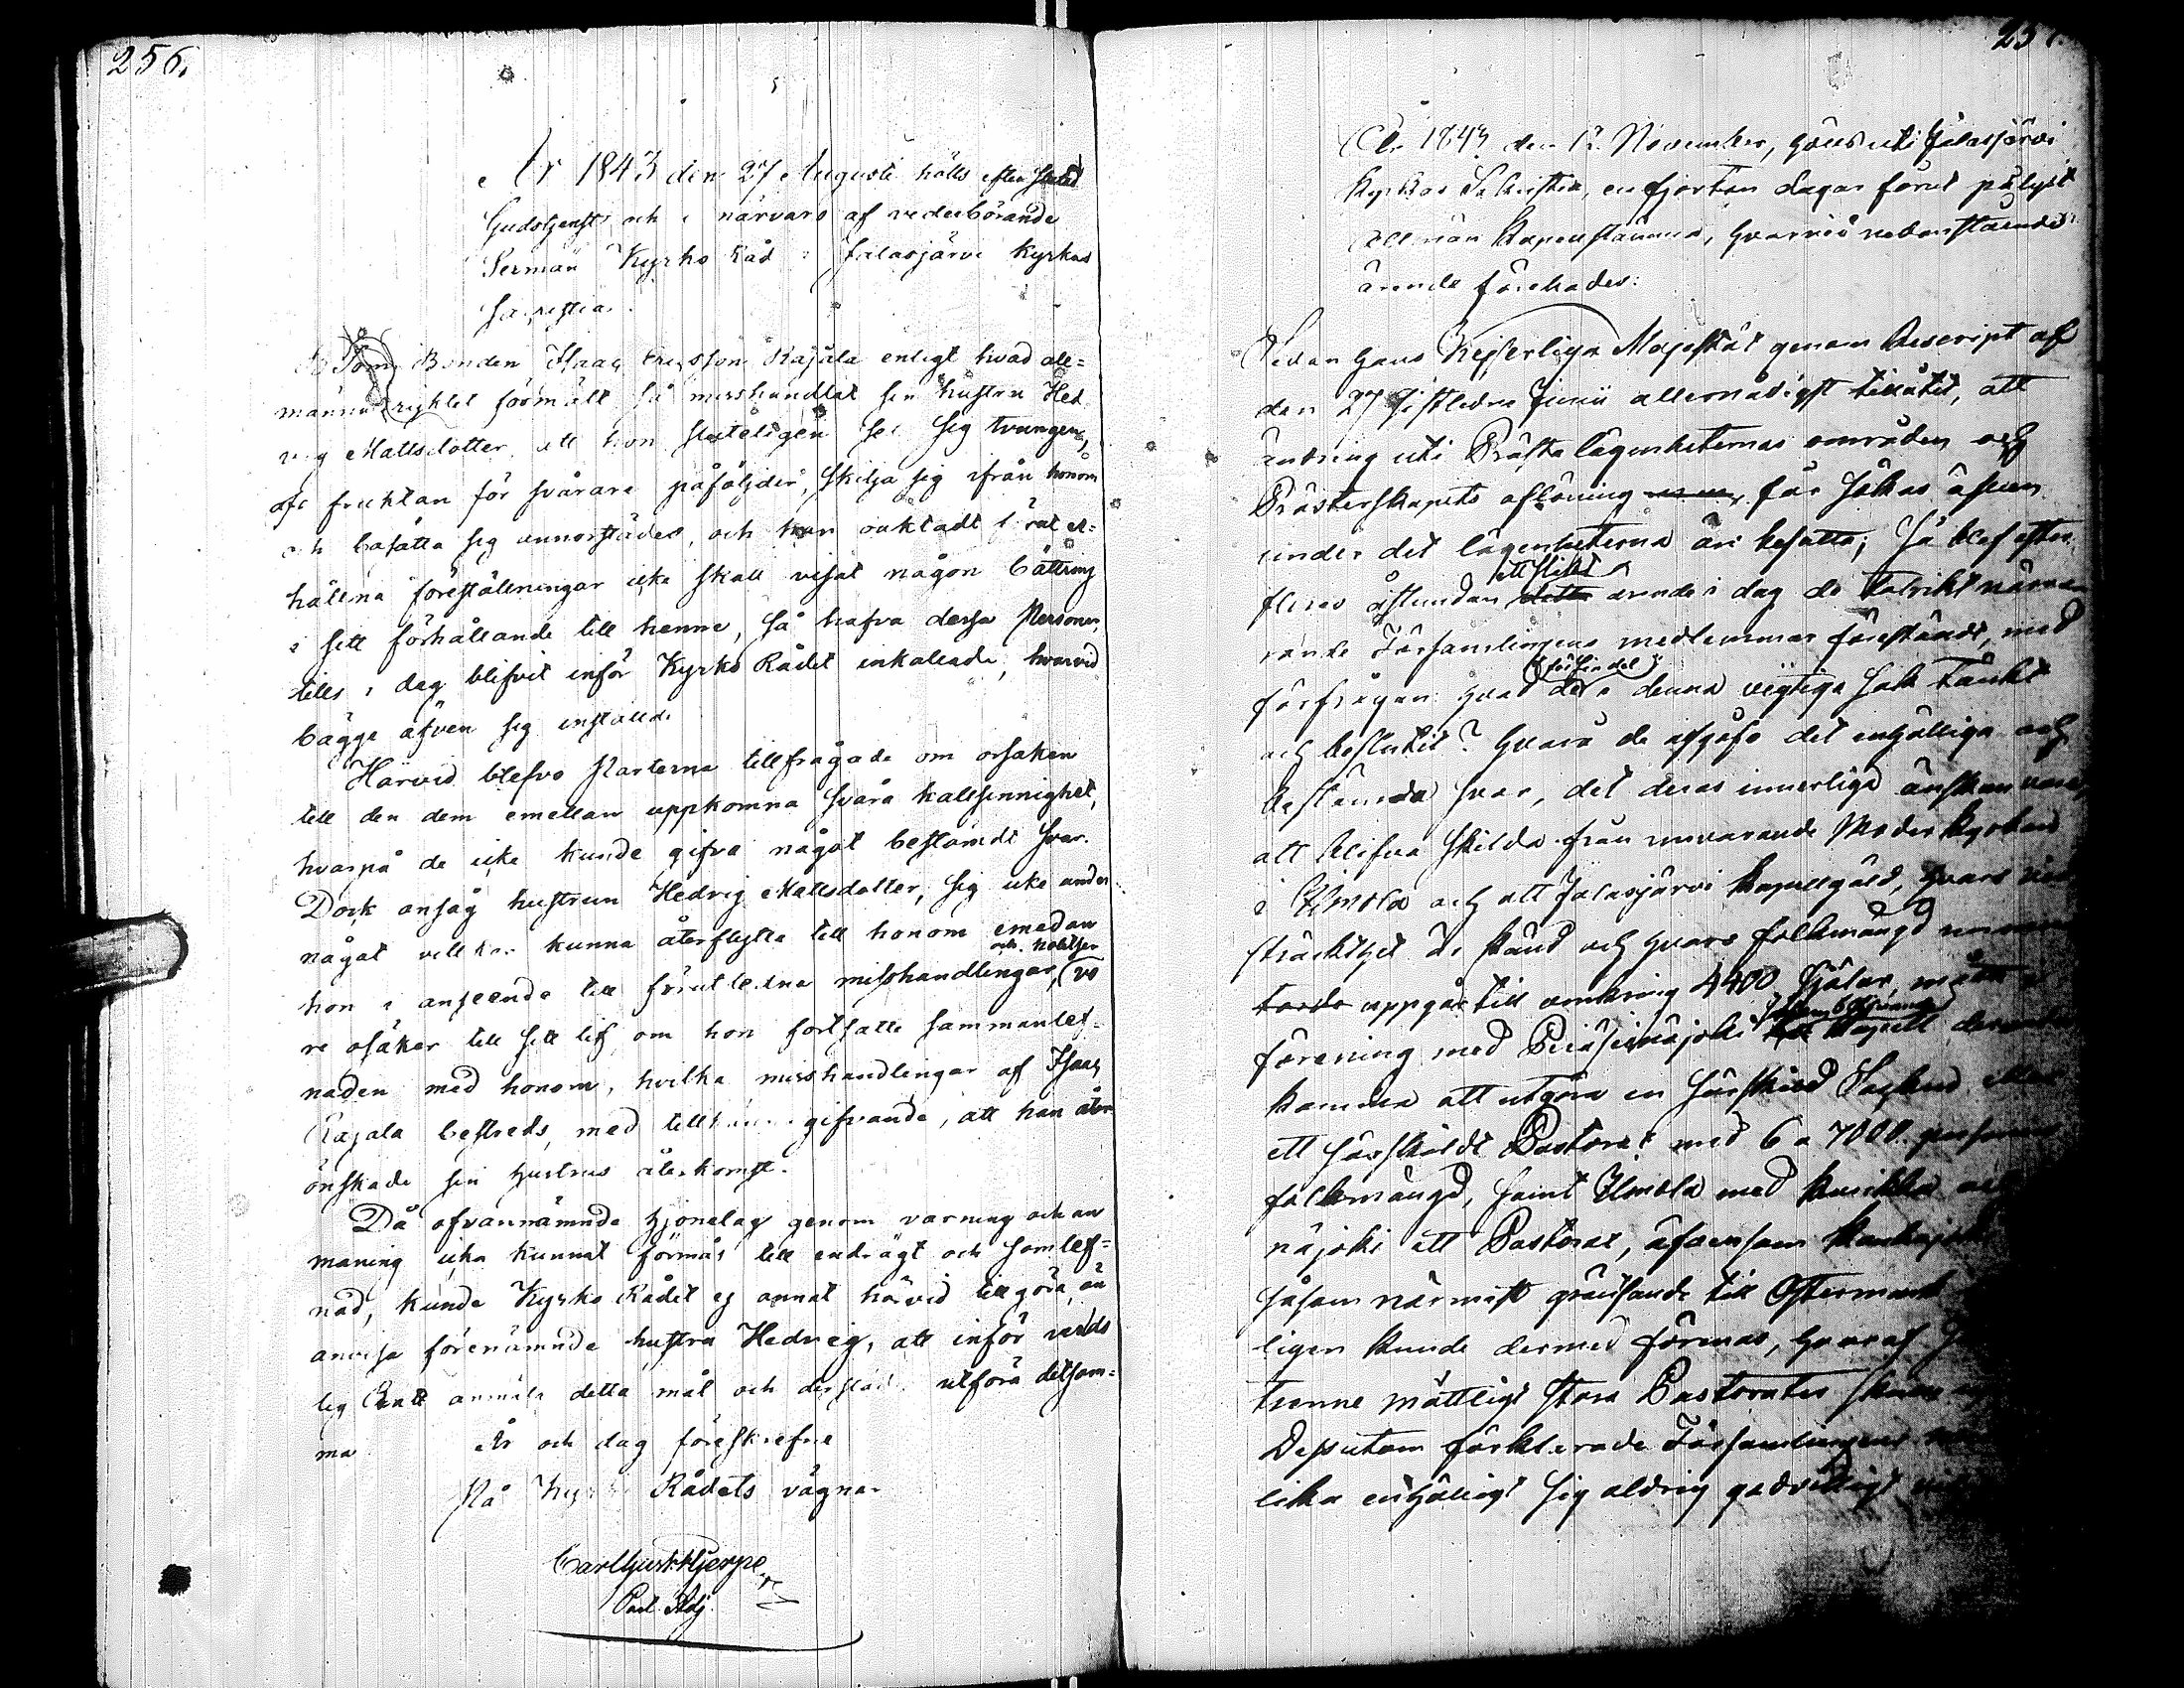 256.
År 1843 den 27 Augusti hölls efter slutad
Gudstjenst och i närvaro af vederbörande
Sexmän Kyrko Råd i Jalasjärvi Kyrkas
Sacristia.
Som Bonden Isaac Ersson Rajala enligt hvad all=
männa ryktet förmält så misshandlat sin hustru Hed
vig Mattsdotter att hon sluteligen sei sig tvungen,
af fruktan för svårare påföljder, skilja sig ifrån honom
och bosätta sig annorstädes, och han oaktadt
hållna föreställningar icke skall visat någon bättring
i sitt förhållande till henne, så hafva dessa Personer,
tills i dag blifvit inför Kyrko Rådet inkallade, hvarvid
bägge äfven sig inställde.
Härvid blefvo Parterna tillfrågade om orsaken
till den dem emellan uppkomna svåra kallsinnighet,
hvarpå de icke kunde gifva något bestämdt svar.
Dock ansåg hustrun Hedvig Mattsdotter, sig icke under
något villkor kunna återflytta till honom emedan
hon i anseende till förutledna misshandlingar, och hotelser vo
re osäker till sitt lif om hon fortsatte sammanlef=
naden med honom, hvilka misshandlingar af Isaac
Rajala bestreds, med tillkännagifvande, att han åter
önskade sin hustrus återkomst.
Då ofvannämnde hjonelag genom varning och an
maning icke kunnat förmås till endrägt och samlef=
nad, kunde Kyrko Rådet ej annat härvid tillgöra, än
anvisa förenämnde hustru Hedvig, att inför verlds
lig Rätt anmäla detta mål och derstädes utföra detsam=
ma. År och dag föreskrefne
På Kyrko Rådets vägnar
Carl Gust. Hjerpe
Past. Adj.
257.
År 1843 den 12 November, hölls uti Jalasjärvi
Kyrkas Sakristia, en fjorton dagar förut pålyst
allmän Sockenstämma, hvarvid nedanstående
ärende förehades:
Sedan Hans Kejserliga Majestät genom Rescript af
den 27 sistledne Junii allernådigst tillåtit, att
ändring uti Prästa lägenheternas områden och
Prästerskapets aflöning får sökas äfven
under det lägenheterna äro besatta; så blef efter
fleres åstundan ett slikt ärende i dag de talrikt närva
rande Församlingens medlemmar förestäldt, med
förfrågan: hvad de (för sin del) i denna vigtiga sak tänkt
och beslutit? Hvarå de afgåfvo det enhälliga och
bestämda svar, det deras innerliga önskan vara,
att blifva skilda från nuvarande Moder Kyrkan
i Ilmola och att Jalasjärvi Kapellgäld, hvars vid
sträckthet är känd och hvars folkmängd
uppgår till omkring 4400 Själar, måtte i
förening med Peräseinäjoki Kapell
komma att utgöra en särskild Socken eller
ett särskildt Pastorat med 6 a 7000 personers
folkmängd, samt Ilmola med Kurikka och
näjoki ett Pastorat, äfvensom
såsom närmast gränsande till Östermark
ligen kunde dermed förenas, hvaraf
trenne måttligt stora Pastorater
Dessutom förklarade Församlingens
lika enhälligt sig aldrig godvilligt